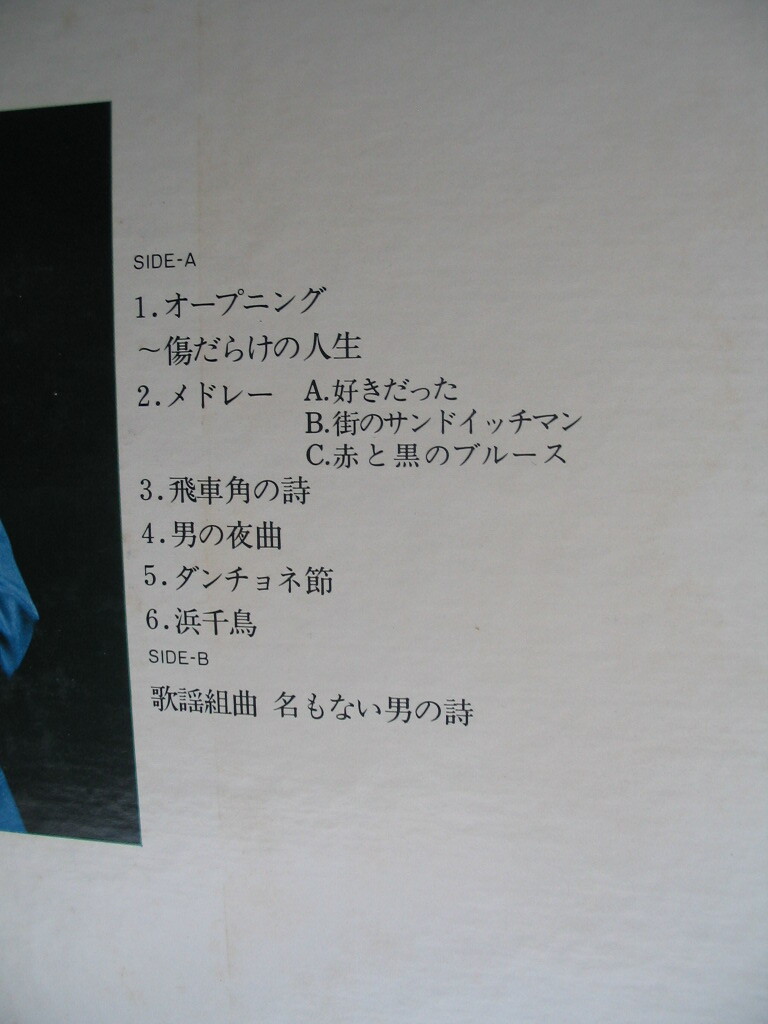 SIDE-A
1.オープニング
～傷だらけの人生
2.メドレー A.好きだった
B.街のサンドイッチマン
C.赤と黒のブルース
3.飛車角の詩
4.男の夜曲
5.ダンチョネ節
6.浜千鳥
SIDE-B
歌謡組曲 名もない男の詩